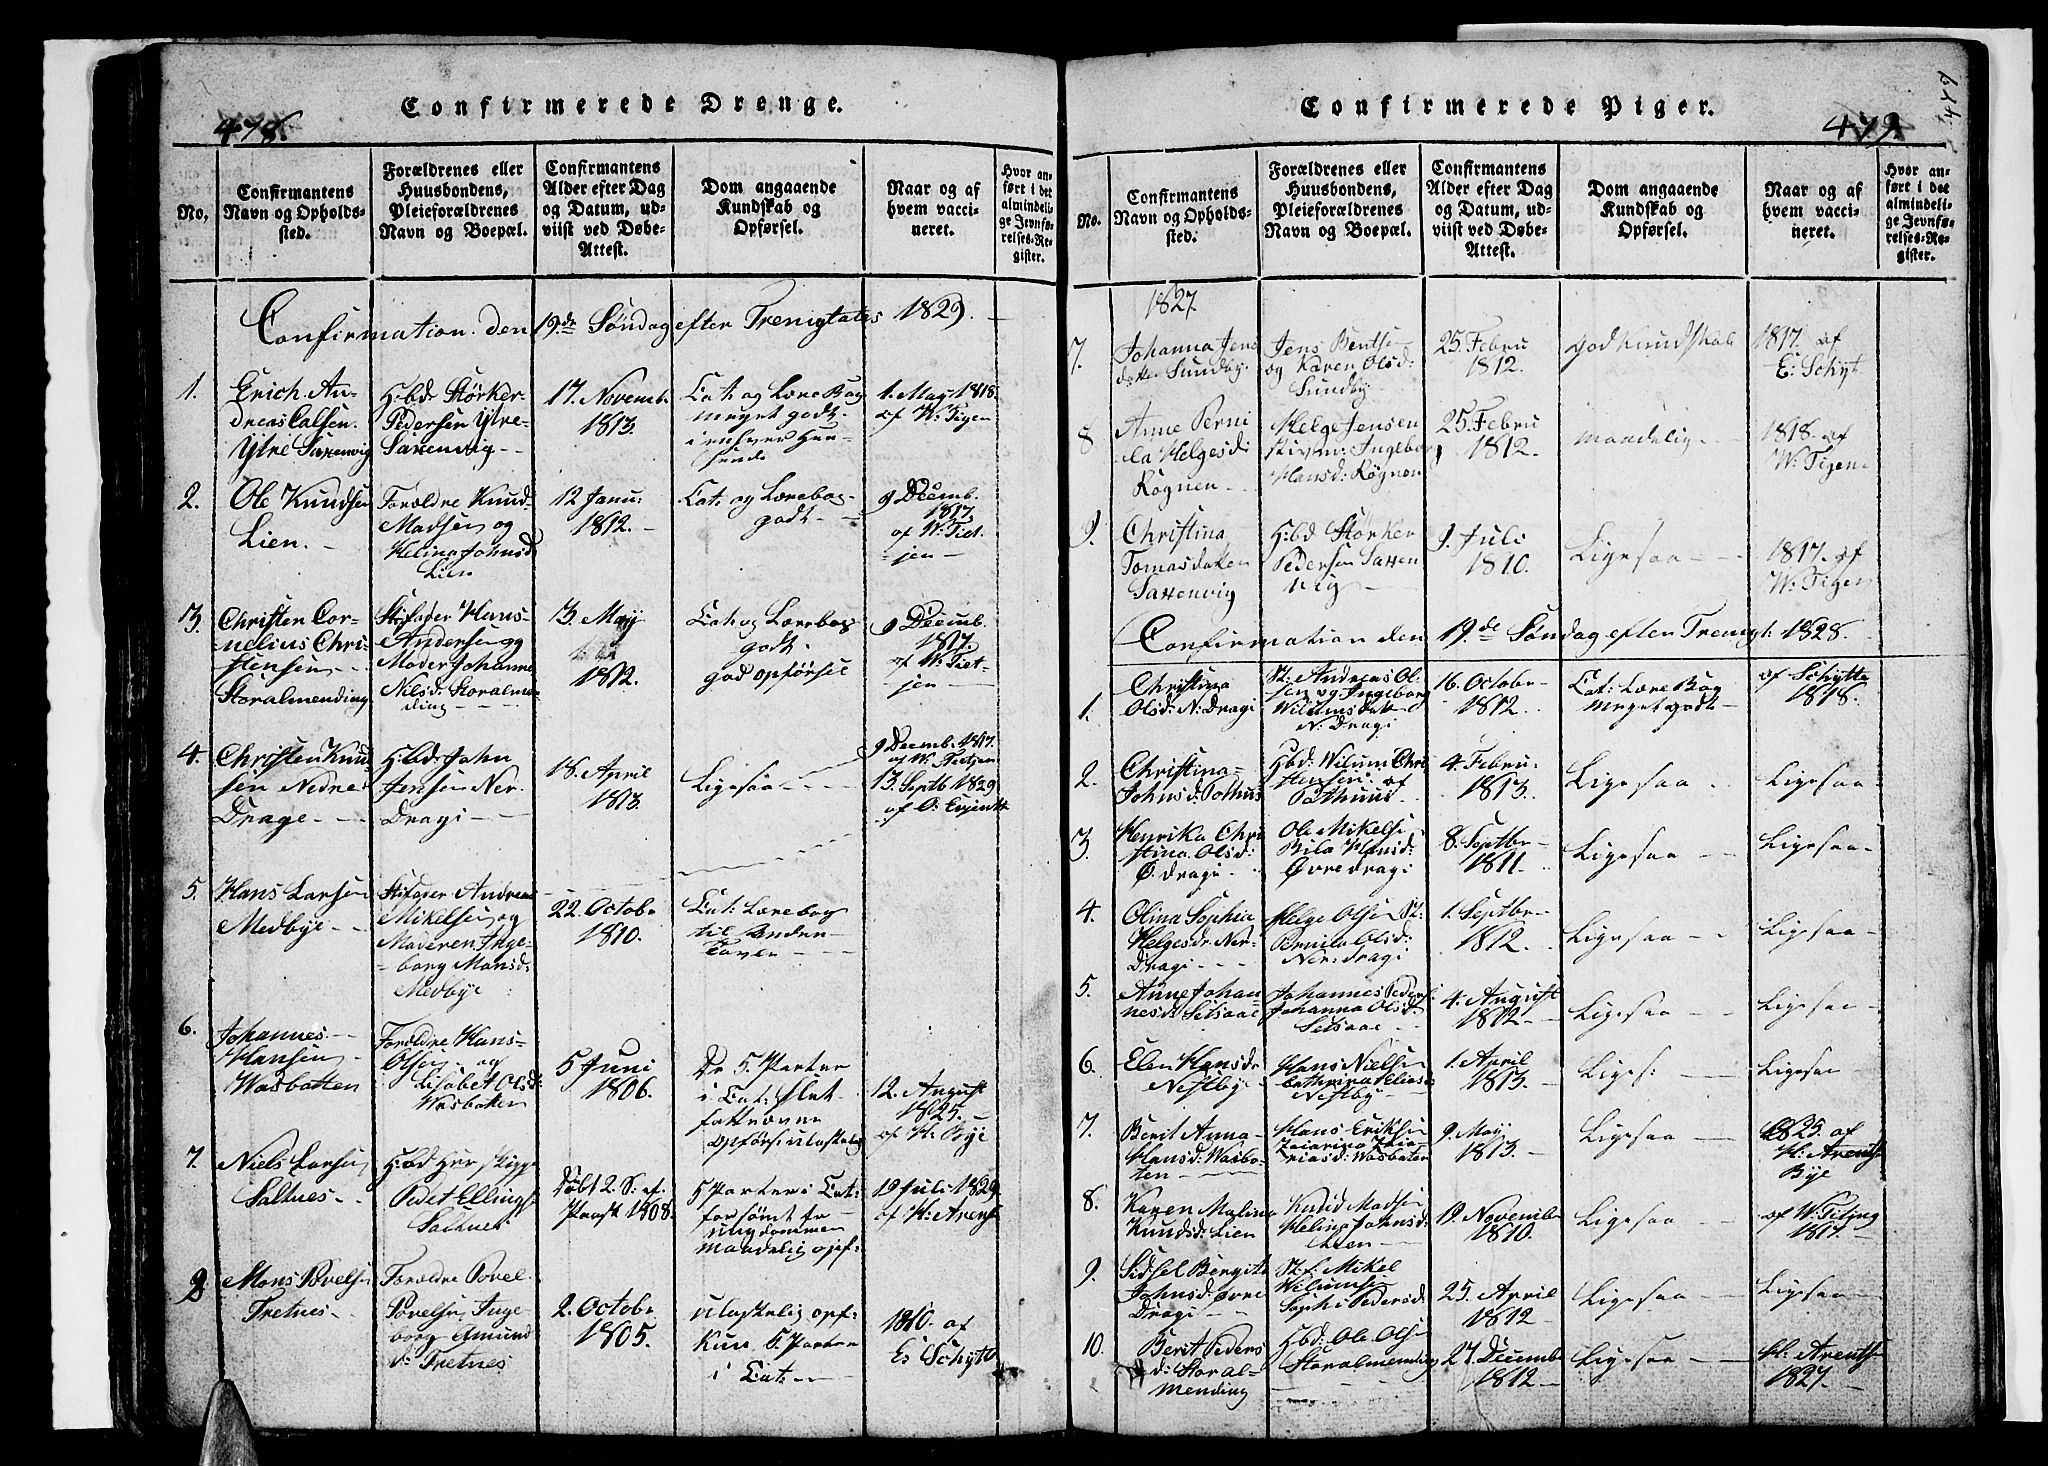 478.
Confirmerede Drenge.
No,
Confirmantens
Navn og Opholds-
sted.
Forældrenes eller
Huusbondens,
Pleieforældrenes
Navn og Boepæl.
Confirmantens
Alder efter Dag
og Datum, ud-
viist ved Døbe-
Attest.
Dom angaaende
Kundskab og
Opførsel.
Naar og af
hvem vacci-
neret.
Hvor an-
ført i det
almindeli-
ge Jevnfø-
relses-Re-
gister.
Confirmation den 19de Søndag efter Trenigtates 1829.
1.
Erich An-
dreas
Ytre Saxenvig
H:bd: Størker
Pedersen Ytre
Saxenvig
17. Novemb.
1813.
Cat: og Lære Bog
meget godt
i enhver Hen-
seende
1. May 1818.
af W: Tigen
2.
Ole Knudsen
Lien.
Forældre Knud
Madsen og
Helina Johnsd
Lien
12 Janu:
1812.
Cat: og Lærebog
godt
9 Decemb.
1817.
af W: Tiet-
jen
3.
Christen Cor-
nelius Chri-
stensen
Storalmending
Stifader Hans
Andersen og
Moder Johanne
Nilsd: Storalmen
ding
3. May
1812.
Cat: og Lærebog
godt.
god opførsel
9 Decemb.
1817.
af W: Tiet-
jen
4.
Christen Knud
sen Nedre
Drage
H:bd: John
Jensen Ner-
Dragi
18. April
1813.
Ligesaa
9 Decemb: 1817.
af W. Tietjen
13. Septb 1829
af O:
5.
Hans Larsen
Medbye
Stifader Andreas
Mikelsen og
Moderen Inge-
borg Monsd:
Medbye
22. Octobr
1810.
Cat: Lærebog
til
6.
Johannes
Hansen
Wasbotten
Forældre Hans
Olsen og
Lisabet Olsd:
Wasboten
5 Juni
1806.
De 5. Parter
i Cat: slet
fattevne
opførs: ulastelig
12. August
1825.
af H: Bye
7.
Niels Larsen
Saltnes
H:bd Her
Peder Ellings
Saltnes
Døbt 2. S: ef.
Paask 1808.
5 Parter i Cat:
forsømt fra
ungdommen
maadelig opf:
19 Juli 1829
af H: Arens
8
Mons Povelsen
Tretnes
Forældre Povel
Povelsen Inge
borg Amund
d: Tretnes
2. Octobr
1805.
ulastelig opf:
Kun 5. Parter
i Cat:
1810. af
E: Schytt
479.
Confirmerede Piger.
No.
Confirmantens
Navn og Opholds-
sted.
Forældrenes eller
Huusbondens,
Pleieforældrenes
Navn og Boepæl.
Confirmantens
Alder efter Dag
og Datum, ud-
viist ved Døbe-
Attest.
Dom angaaende
Kundskab og
Opførsel.
Naar og af
hvem vacci-
neret.
Hvor an-
ført i det
almindeli-
ge Jevnfø-
relses-Re-
gister.
1827.
7.
Johanna Jens
dater Sundby.
Jens Bentsen
og Karen Olsd:
Sundby
25. Febru
1812.
god Kundskab
1817. af
E: Schyt
8
Anne Perni
la Helgesd:
Røgnen
Helge Jensen
Ingeborg
Hansd: Røgnen
25. Febru
1812.
maadelig
1818. af
W: Tigen
9.
Christina
Tomasdater
Saxenvig
H:bd Størker
Pedersen Saxen
vig
9. Juli
1810.
Ligesaa
1817. af
W: Tigen
Confirmation den 19.de Søndag efter Trenigt: 1828.
1.
Christina
Olsd: N: Dragi
St: Andreas Ol
sen og Ingeborg
Wilumsdatt
N: Dragi
16. Octobr
1812.
Cat: Lære Bog
meget godt
af Schytte
1818.
2.
Christina
Johnsd: Pothus
H:bd: Wilum Chri
stensen af
Pothuus
4. Febru:
1813.
Ligesaa
Ligesaa
3.
Henrika Chri
stina Olsd:
Ø. dragi
Ole Mikelsen
Bila Hansd:
Øvre dragi
8. Septbr
1811.
Ligesaa
Ligesaa
4.
Olina Sophia
Helgesd: Ner-
Dragi
Helge Olsen St:
Pernila Olsd:
Ner: dragi
1. Septbr
1812.
Ligesaa
Ligesaa
5.
Anne Johan-
nesd: Setsaae
Johannes Peders:
Johanna Olsd:
Setsaae
4. August
1812
Ligesaa
Ligesaa
6.
Elen Hansdr
Nestbye
Hans Nielsen
Cathrina Elias
Nestby
1. April
1813.
Liges:
Ligesaa
7.
Berit Anna
Hansd: Wasbo-
ten
Hans Eriksen
Zacarina Zaca-
riasd: Wasboten
9. May
1813.
Ligesaa
1825. af
H: Arents
Bye
8.
Karen Malina
Knudsd: Lien
Knud Madsen
Helina Johnsd.
Lien
19. Novembr
1810.
Ligesaa
af W: Titjng
1817.
9.
Sidsel Bergite
Johnsd: øvre
Dragi
St: f. Mikel
Wilumsen
Sophi Pedersd:
25. April
1812
Ligesaa
Ligesaa
10.
Berit Peders
d: Storal-
mending
H:bd: Ole Olsen
Storalmending
27. Decemb
1812
Ligesaa
H: Arents
1827.